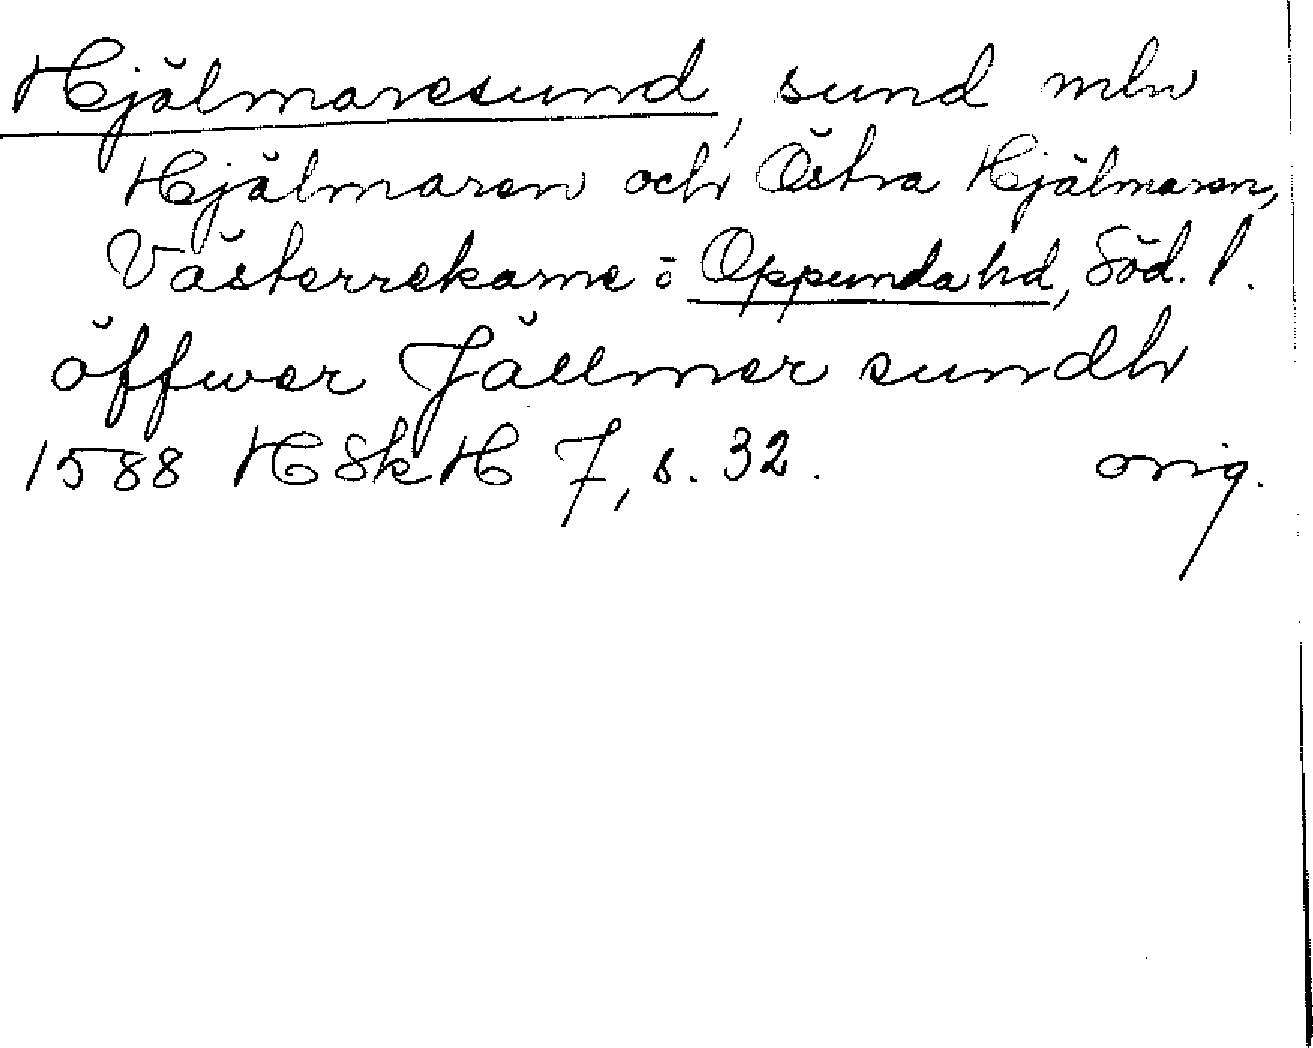 Hjälmaresund, sund mln
Hjälmaren och Östra Hjälmaren,
Västerrekarne ö Oppunda hd, Söd. l.
öffwer Jällmer sundh
1588 HSkH 7, s. 32. orig.